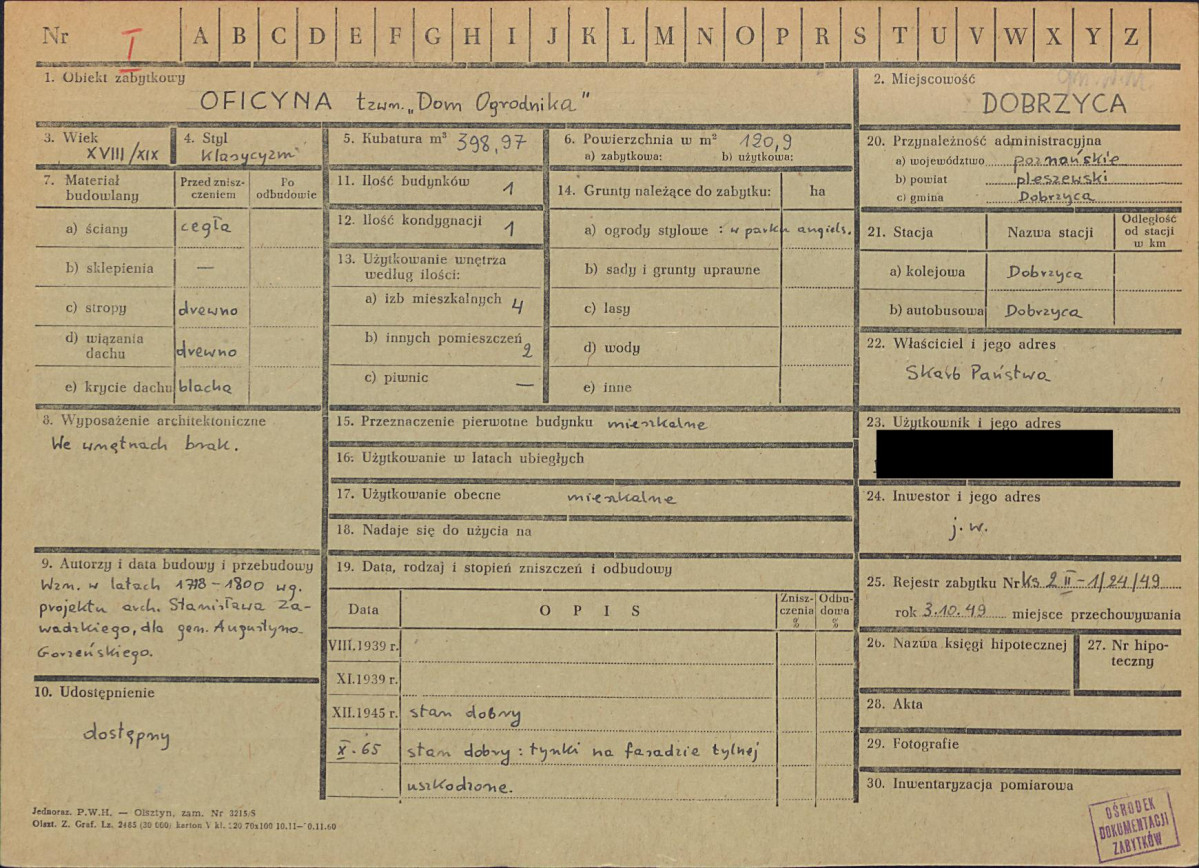 Nr I A B C D E F G H I J K L M N O P R S T U V W X Y Z
1. Obiekt zabytkowy
OFICYNA tzwn. „Dom Ogrodnika"
2. Miejscowość
DOBRZYCA
3. Wiek
XVIII/XIX
4. Styl
klasycyzm
5. Kubatura m³ 398,97
6. Powierzchnia w m² 120,9
a) zabytkowa: b) użytkowa:
7. Materiał budowlany
Przed znisz-
czeniem
Po
odbudowie
a) ściany cegła
b) sklepienia —
c) stropy drewno
d) wiązania
dachu drewno
e) krycie dachu blacha
8. Wyposażenie architektoniczne
We wnętrzach brak.
9. Autorzy i data budowy i przebudowy
Wzn. w latach 1778-1800 wg.
projektu arch. Stanisława Za-
wadzkiego, dla gen. Augustyna
Gorzeńskiego.
10. Udostępnienie
dostępny
11. Ilość budynków 1
12. Ilość kondygnacji 1
13. Użytkowanie wnętrza
według ilości:
a) izb mieszkalnych 4
b) innych pomieszczeń 2
c) piwnic —
14. Grunty należące do zabytku: ha
a) ogrody stylowe : w parku angiels.
b) sady i grunty uprawne
c) lasy
d) wody
e) inne
15. Przeznaczenie pierwotne budynku mieszkalne
16. Użytkowanie w latach ubiegłych
17. Użytkowanie obecne mieszkalne
18. Nadaje się do użycia na
19. Data, rodzaj i stopień zniszczeń i odbudowy
Data OPIS
Znisz-
czenia
%
Odbu-
dowa
%
VIII.1939 r.
XI.1939 r.
XII.1945 r. stan dobry
X. 65 stan dobry : tynki na fasadzie tylnej
uszkodzone.
20. Przynależność administracyjna
a) województwo poznańskie
b) powiat pleszewski
c) gmina Dobrzyca
21. Stacja Nazwa stacji
Odległość
od stacji
w km
a) kolejowa Dobrzyca
b) autobusowa Dobrzyca
22. Właściciel i jego adres
Skarb Państwa
23. Użytkownik i jego adres
24. Inwestor i jego adres
j. w.
25. Rejestr zabytku Nr ks 2 II-1/24/49
rok 3.10.49 miejsce przechowywania
26. Nazwa księgi hipotecznej
27. Nr hipo-
teczny
28. Akta
29. Fotografie
30. Inwentaryzacja pomiarowa
Jednoraz. P.W.H. — Olsztyn, zam. Nr 3215/S
Olszt. Z. Graf. Lz. 2485 (30 000) karton V kl. 120 70x100 10.11—
OŚRODEK
DOKUMENTACJI
ZABYTKÓW